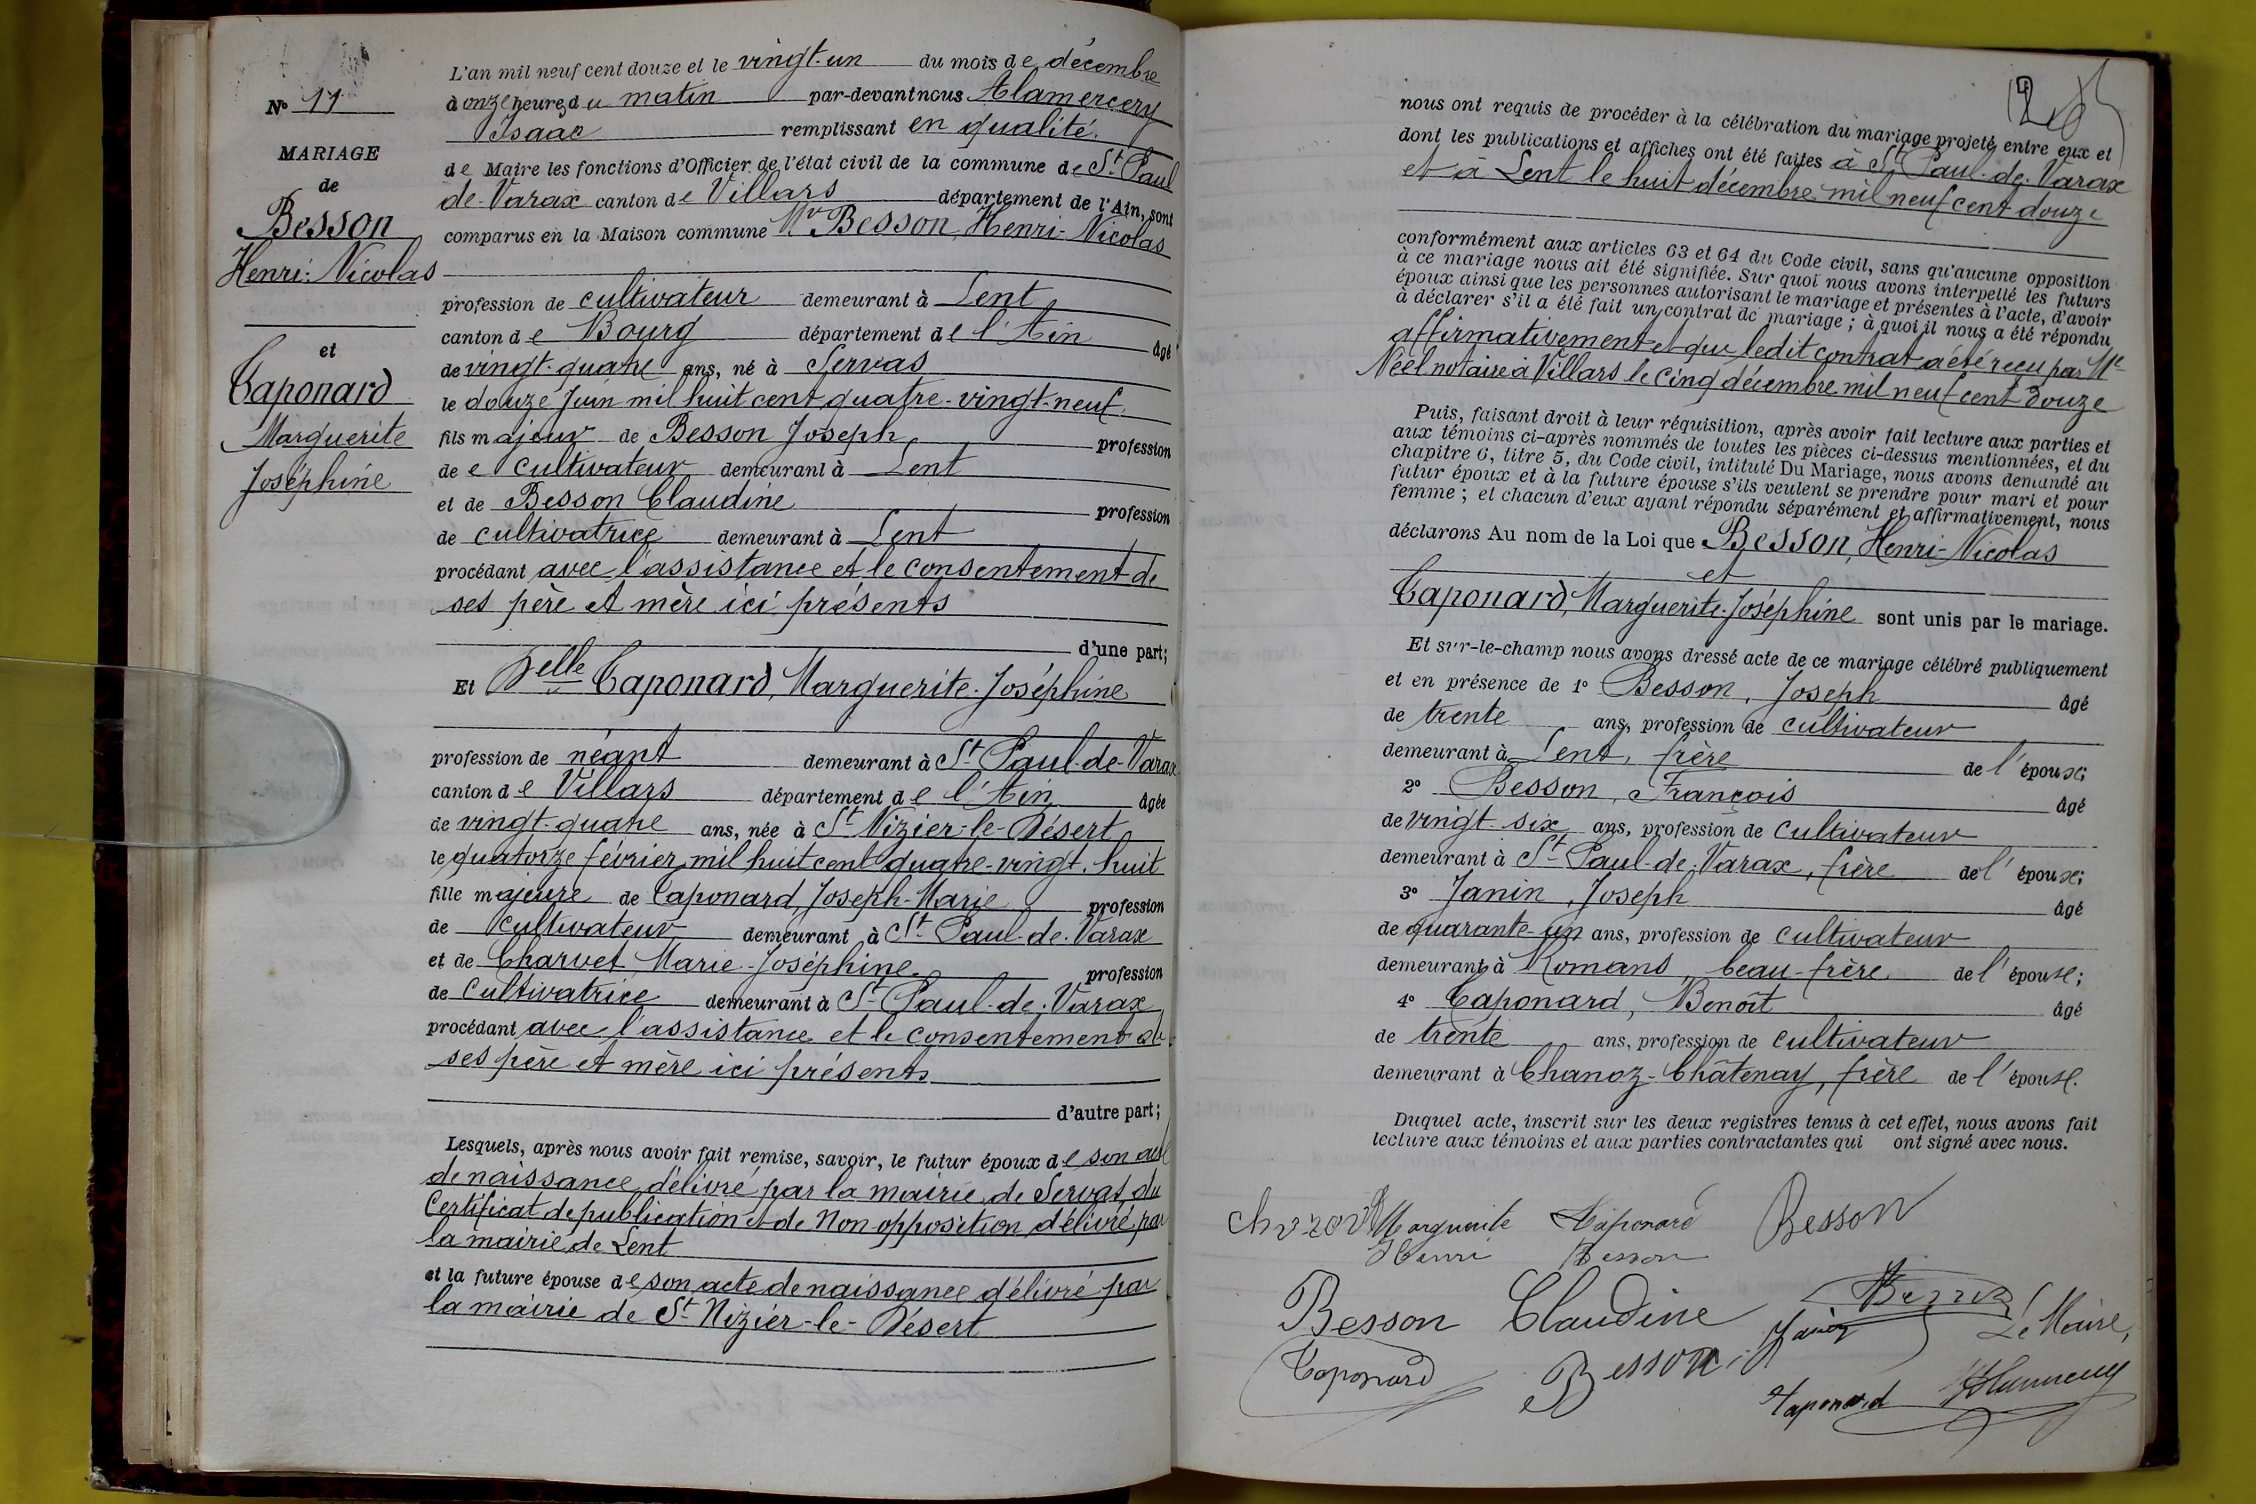 N° 11
MARIAGE
de
Besson
Henri-Nicolas
et
Taponard
Marguerite
Joséphine
L'an mil neuf cent douze et le vingt-un du mois de décembre
à onze heures du matin par-devant nous Alamercery
Isaac remplissant en qualité
de Maire les fonctions d'Officier de l'état civil de la commune de St Paul
de-Varax canton de Villars département de l'Ain, sont
comparus en la Maison commune Mr Besson, Henri-Nicolas
profession de cultivateur demeurant à Lent
canton de Bourg département de l'Ain âgé
de vingt-quatre ans, né à Servas
le douze Juin mil huit cent quatre-vingt-neuf
fils majeur de Besson Joseph profession
de e cultivateur demeurant à Lent
et de Besson Claudine profession
de cultivatrice demeurant à Lent
procédant avec l'assistance et le consentement de
ses père et mère ici présents
d'une part;
Et Delle Taponard, Marguerite-Joséphine
profession de néant demeurant à St Paul-de-Varax
canton de Villars département de l'Ain âgée
de vingt-quatre ans, née à St Nizier-le-Désert
le quatorze février mil huit cent quatre-vingt-huit
fille majeure de Taponard, Joseph-Marie profession
de cultivateur demeurant à St Paul-de-Varax
et de Charvet, Marie-Joséphine profession
de cultivatrice demeurant à St Paul-de-Varax
procédant avec l'assistance et le consentement de
ses père et mère ici présents
d'autre part;
Lesquels, après nous avoir fait remise, savoir, le futur époux de son acte
de naissance, délivré par la mairie de Servas, du
Certificat de publication et de Non opposition délivré par
la mairie de Lent
et la future épouse de son acte de naissance délivré par
la mairie de St Nizier-le-Désert
nous ont requis de procéder à la célébration du mariage projeté entre eux et
dont les publications et affiches ont été faites à St Paul-de-Varax
et à Lent le huit décembre mil neuf cent douze
conformément aux articles 63 et 64 du Code civil, sans qu'aucune opposition
à ce mariage nous ait été signifiée. Sur quoi nous avons interpellé les futurs
époux ainsi que les personnes autorisant le mariage et présentes à l'acte, d'avoir
à déclarer s'il a été fait un contrat de mariage; à quoi il nous a été répondu
affirmativement et que ledit contrat a été reçu par Me
Néel notaire à Villars le cinq décembre mil neuf cent douze
Puis, faisant droit à leur réquisition, après avoir fait lecture aux parties et
aux témoins ci-après nommés de toutes les pièces ci-dessus mentionnées, et du
chapitre 6, titre 5, du Code civil, intitulé Du Mariage, nous avons demandé au
futur époux et à la future épouse s'ils veulent se prendre pour mari et pour
femme; et chacun d'eux ayant répondu séparément et affirmativement, nous
déclarons Au nom de la Loi que Besson, Henri-Nicolas
et
Taponard, Marguerite-Joséphine sont unis par le mariage.
Et sur-le-champ nous avons dressé acte de ce mariage célébré publiquement
et en présence de 1° Besson, Joseph âgé
de trente ans, profession de cultivateur
demeurant à Lent, frère de l'époux;
2° Besson, François âgé
de vingt-six ans, profession de cultivateur
demeurant à St Paul-de-Varax, frère de l'époux;
3° Janin, Joseph âgé
de quarante-un ans, profession de cultivateur
demeurant à Romans, beau-frère de l'épouse;
4° Taponard, Benoît âgé
de trente ans, profession de cultivateur
demeurant à Chanoz-Châtenay, frère de l'épouse.
Duquel acte, inscrit sur les deux registres tenus à cet effet, nous avons fait
lecture aux témoins et aux parties contractantes qui ont signé avec nous.
Marguerite Taponard Besson
Henri Besson
Besson Claudine Janin Le Maire,
Taponard Besson
Taponard